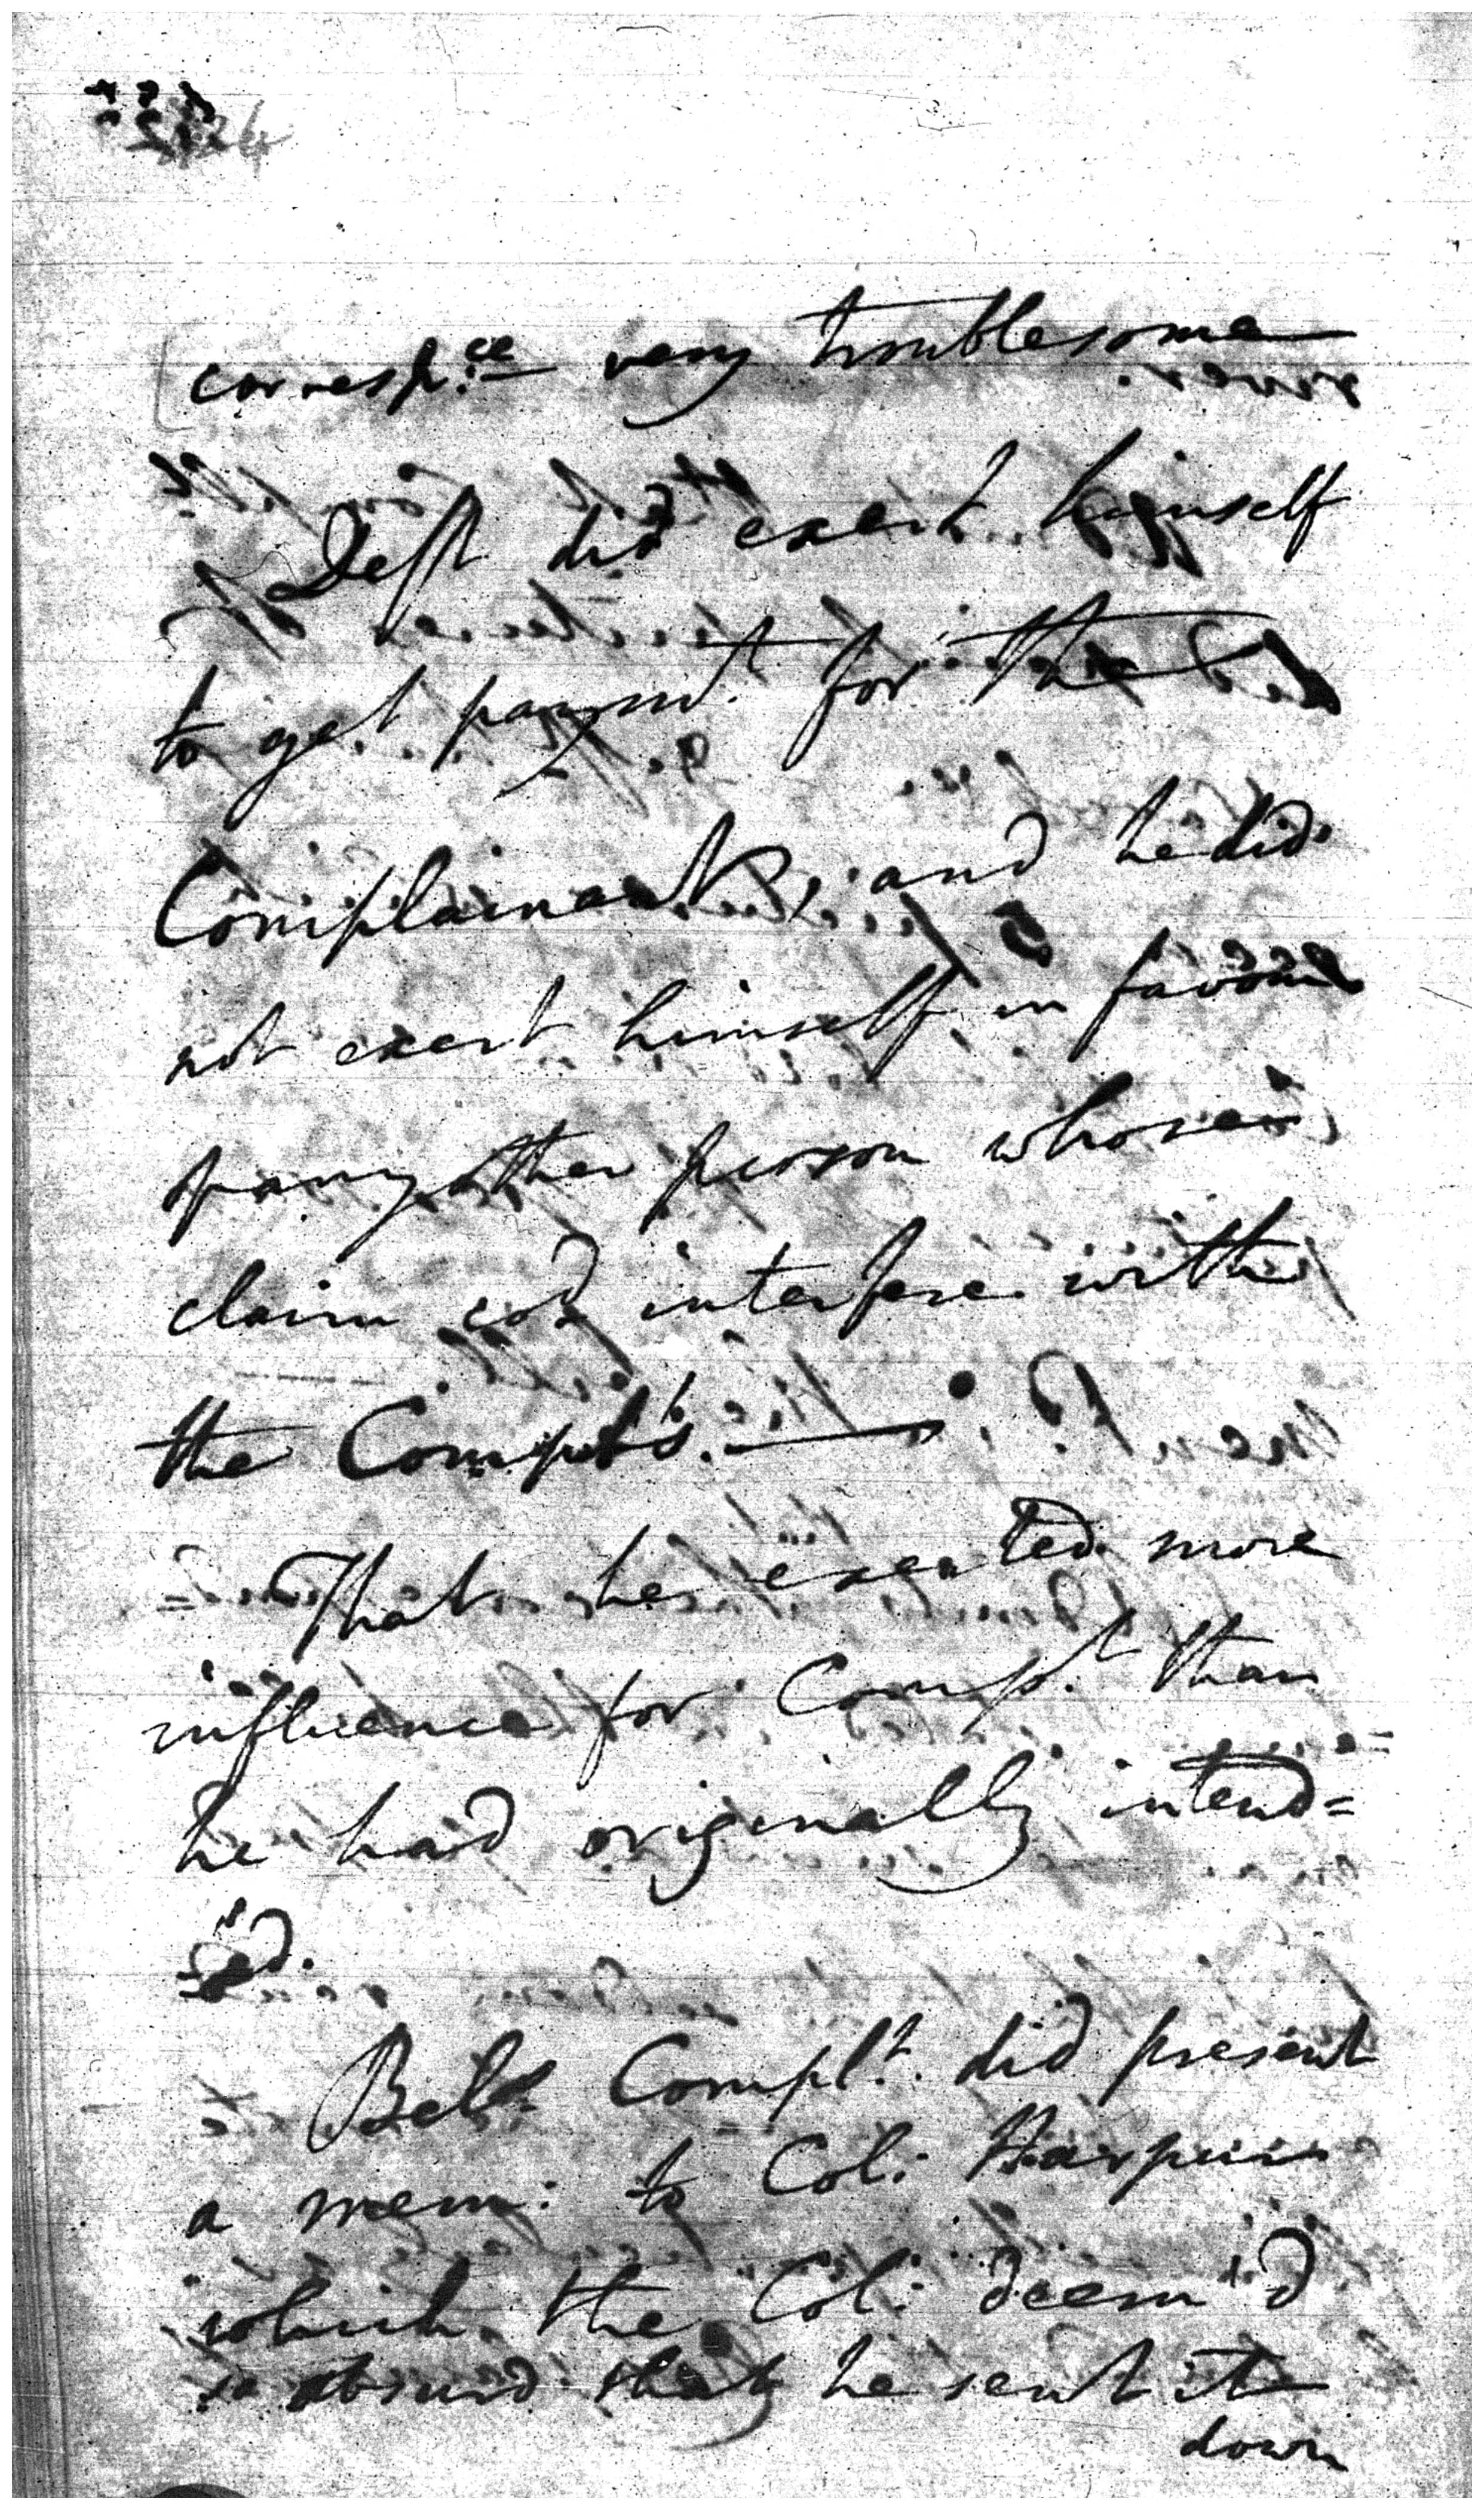 corresp.ce very troublesome
Deft did exert himself
to get paymt. for the
Complainant, and he did
not exert himself in favour
of any other person whose
claim cod interfere with
the Complts.
That he exerted more
influence for Compt. than
he had originally intend=
=ed.
Bels Complt. did present
a mem: to Col: Harper
which the Col: deem'd
so absurd that he sent it
down